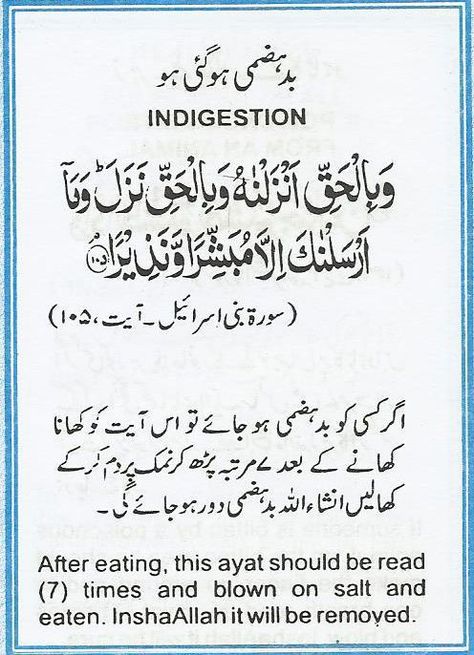 بدہضمی ہوگئی ہو
INDIGESTION
وَبِالْحَقِّ اَنْزَلْنٰهُ وَبِالْحَقِّ نَزَلَ ؕ وَمَاۤ
اَرْسَلْنٰكَ اِلَّا مُبَشِّرًا وَّنَذِيْرًا ﴿۱۰۵﴾
(سورۃ بنی اسرائیل۔ آیت، ۱۰۵)
اگر کسی کو بدہضمی ہو جائے تو اس آیت کو کھانا
کھانے کے بعد ۷ مرتبہ پڑھ کر نمک پر دم کر کے
کھالیں انشاء اللہ بدہضمی دور ہو جائے گی۔
After eating, this ayat should be read
(7) times and blown on salt and
eaten. InshaAllah it will be removed.